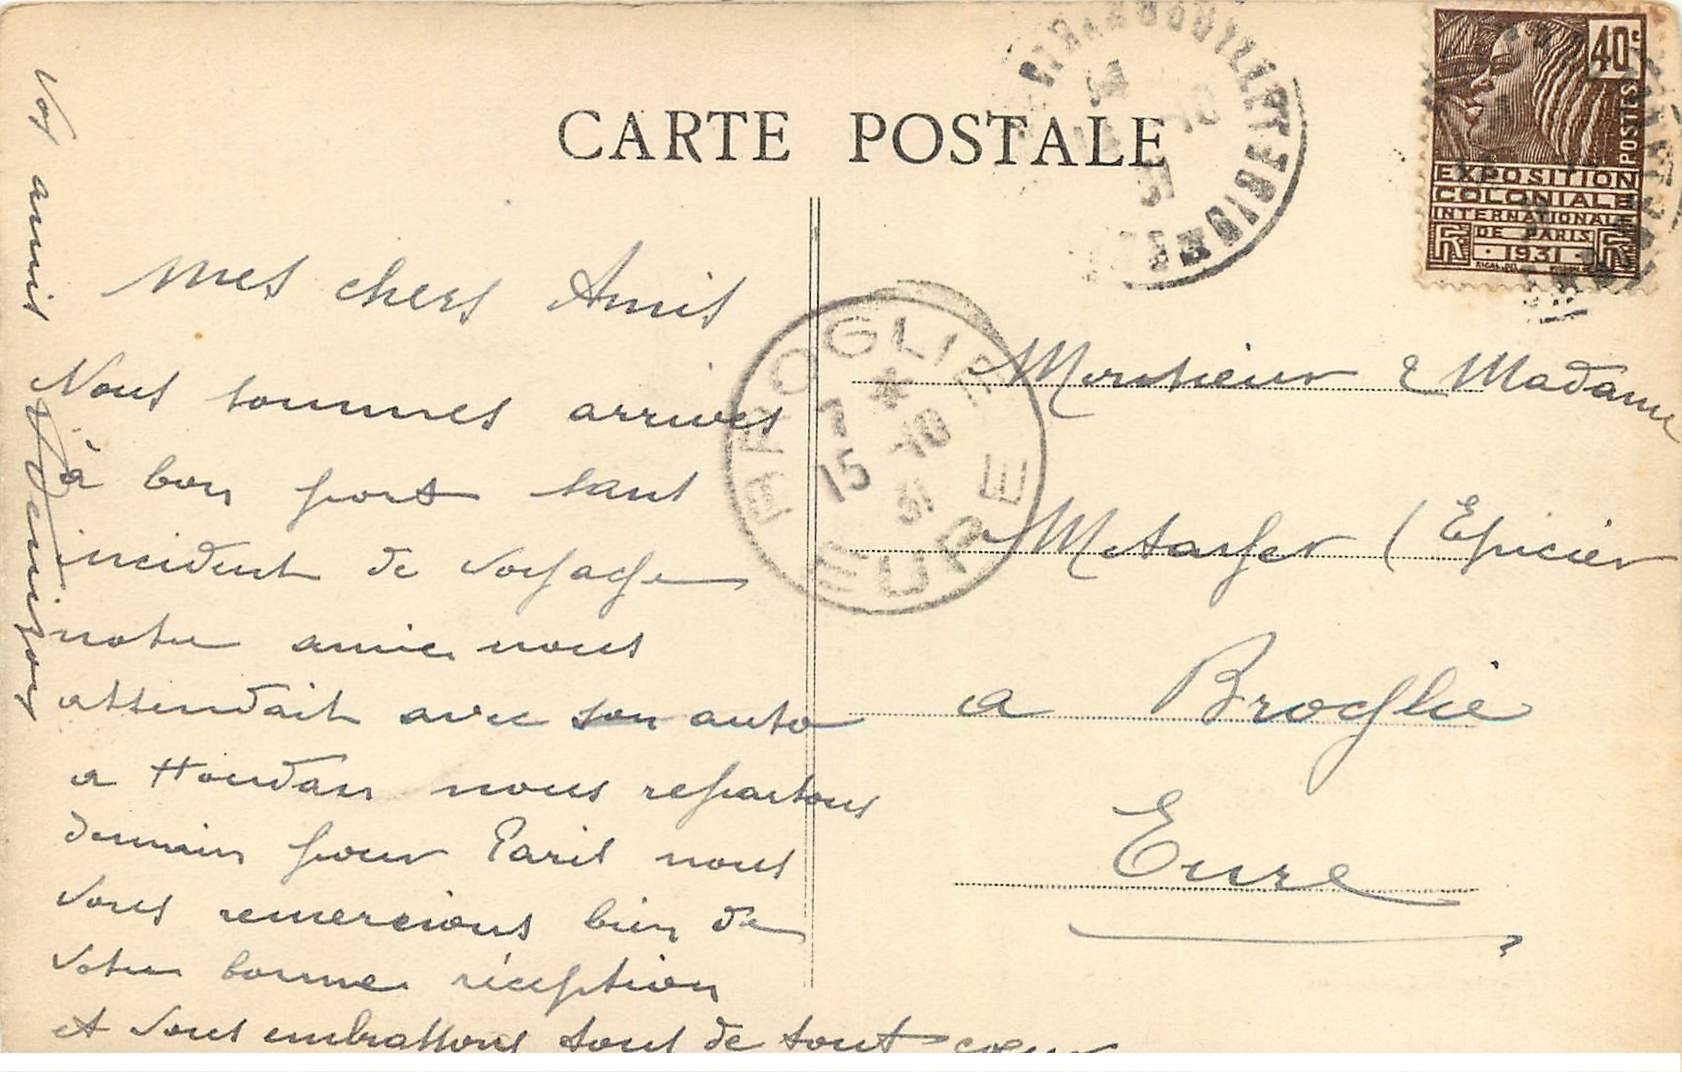 CARTE POSTALE
40c
POSTES
EXPOSITION
COLONIALE
INTERNATIONALE
DE PARIS
1931
RF RF
RAMBOUILLET
14 -10
31
BROGLIE
*
7
15 -10
31
EURE
mes chers Amis
Nous sommes arrives
à bon port sans
incident de voyage
notre amie nous
attendait avec son auto
a Houdan nous repartons
demain pour Paris nous
vous remercions bien de
votre bonne réception
et vous embrassons tous de tout cœur
Vos amis
Monsieur & Madame
( Epicier
a Broglie
Eure